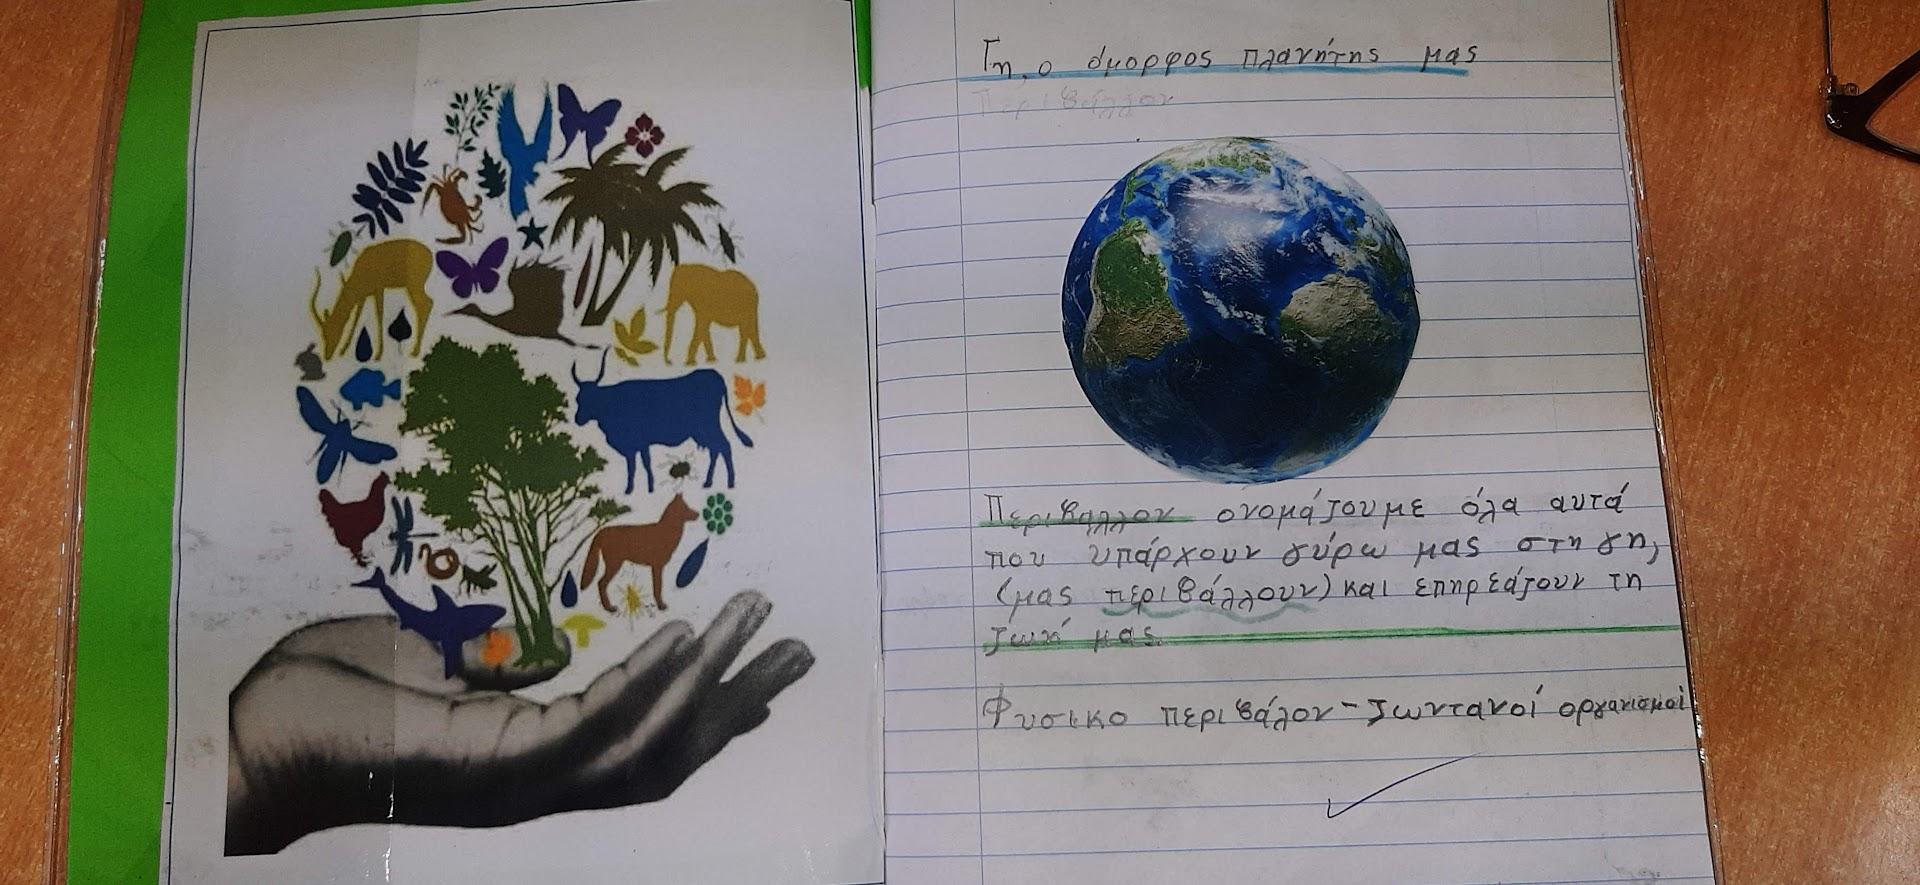 Γη, ο όμορφος πλανήτης μας
Περιβάλλον
Περιβαλλον ονομάζουμε όλα αυτά
που υπάρχουν γύρω μας στη γη,
(μας περιβάλλουν) και επηρεάζουν τη
ζωή μας.
Φυσικο περιβάλον - ζωντανοί οργανισμοί